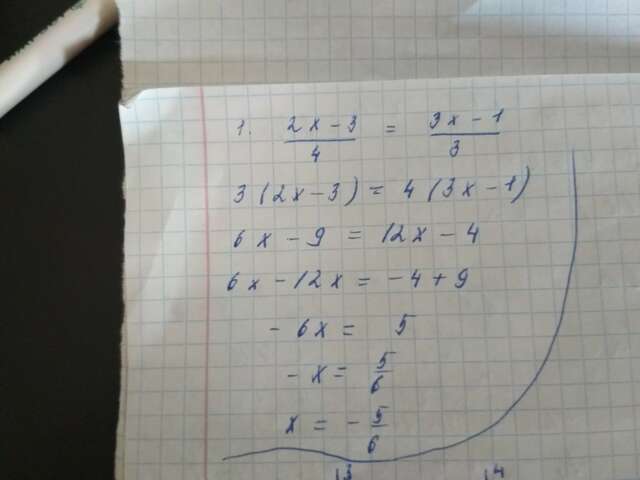 1. (2x-3)/4 = (3x-1)/3
3(2x-3) = 4(3x-1)
6x - 9 = 12x - 4
6x - 12x = -4 + 9
- 6x = 5
- x = 5/6
x = - 5/6